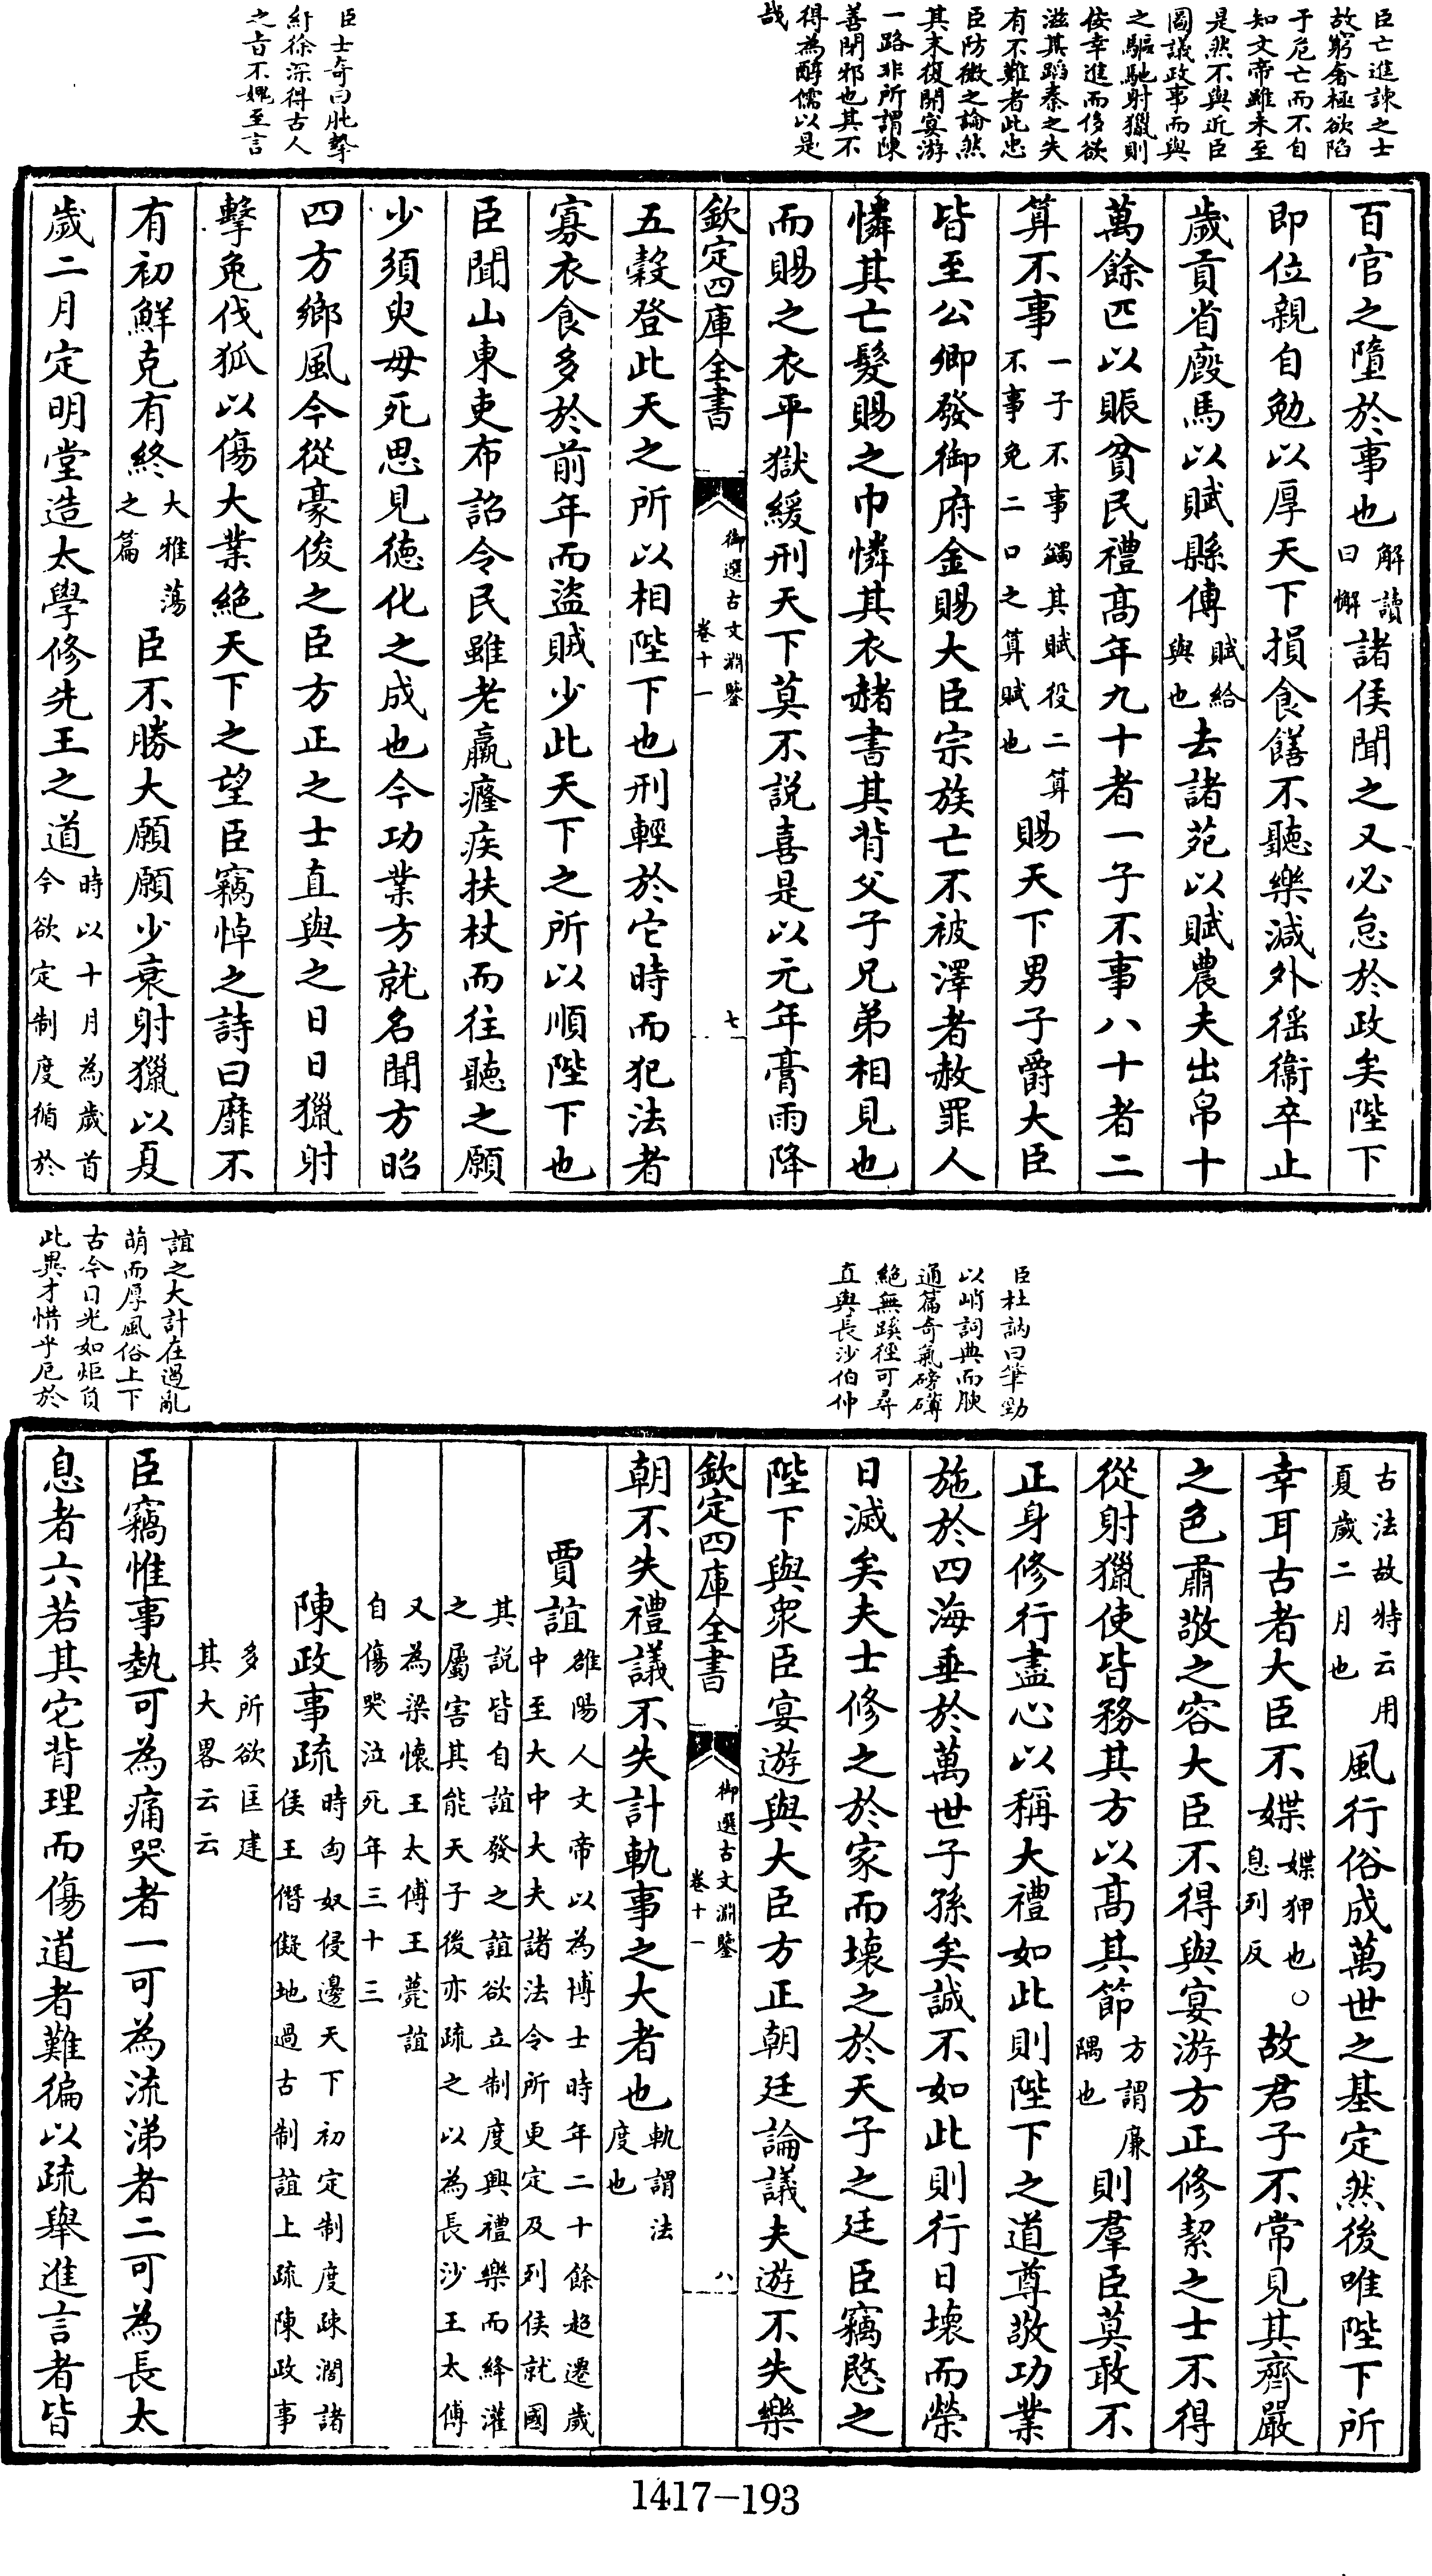 臣亡進諫之士
故窮奢極欲陷
于危亡而不自
知文帝雖未至
是然不與近臣
圖議政事而與
之驅馳射獵則
佞幸進而侈欲
滋其蹈秦之失
有不難者此忠
臣防微之論然
其末復開宴游
一路非所謂陳
善閉邪也其不
得為醇儒以是
哉
臣士奇曰肫摯
紆徐深得古人
之旨不媿至言
百官之墮於事也解讀曰懈諸侯聞之又必怠於政矣陛下
即位親自勉以厚天下損食饍不聽樂減外徭衞卒止
歲貢省廄馬以賦縣傳賦給與也去諸苑以賦農夫出帛十
萬餘匹以賑貧民禮髙年九十者一子不事八十者二
算不事一子不事蠲其賦役二算不事免二口之算賦也賜天下男子爵大臣
皆至公卿發御府金賜大臣宗族亡不被澤者赦罪人
憐其亡髮賜之巾憐其衣赭書其背父子兄弟相見也
而賜之衣平獄緩刑天下莫不說喜是以元年膏雨降
欽定四庫全書 御選古文淵鑒 卷十一 七
五穀登此天之所以相陛下也刑輕於它時而犯法者
寡衣食多於前年而盜賊少此天下之所以順陛下也
臣聞山東吏布詔令民雖老羸癃疾扶杖而往聽之願
少須臾毋死思見德化之成也今功業方就名聞方昭
四方鄉風今從豪俊之臣方正之士直與之日日獵射
擊兔伐狐以傷大業絕天下之望臣竊悼之詩曰靡不
有初鮮克有終大雅蕩之篇臣不勝大願願少衰射獵以夏
歲二月定明堂造太學修先王之道時以十月為歲首今欲定制度循於
臣杜訥曰筆勁
以峭詞典而腴
通篇奇氣磅礴
絕無蹊徑可尋
直與長沙伯仲
誼之大計在遏亂
萌而厚風俗上下
古今目光如炬負
此異才惜乎厄於
古法故特云用夏歲二月也風行俗成萬世之基定然後唯陛下所
幸耳古者大臣不媟媟狎也息列反○故君子不常見其齊嚴
之色肅敬之容大臣不得與宴游方正修絜之士不得
從射獵使皆務其方以髙其節方謂廉隅也則羣臣莫敢不
正身修行盡心以稱大禮如此則陛下之道尊敬功業
施於四海垂於萬世子孫矣誠不如此則行日壞而榮
日滅矣夫士修之於家而壞之於天子之廷臣竊愍之
陛下與衆臣宴遊與大臣方正朝廷論議夫遊不失樂
欽定四庫全書 御選古文淵鑒 卷十一 八
朝不失禮議不失計軌事之大者也軌謂法度也
賈誼雒陽人文帝以為博士時年二十餘超遷歲中至大中大夫諸法令所更定及列侯就國
其說皆自誼發之誼欲立制度興禮樂而絳灌之屬害其能天子後亦疏之以為長沙王太傅
又為梁懷王太傅王薨誼自傷哭泣死年三十三
陳政事疏時匈奴侵邊天下初定制度疎濶諸侯王僭儗地過古制誼上疏陳政事
多所欲匡建其大畧云云
臣竊惟事埶可為痛哭者一可為流涕者二可為長太
息者六若其它背理而傷道者難徧以疏舉進言者皆
1417-193